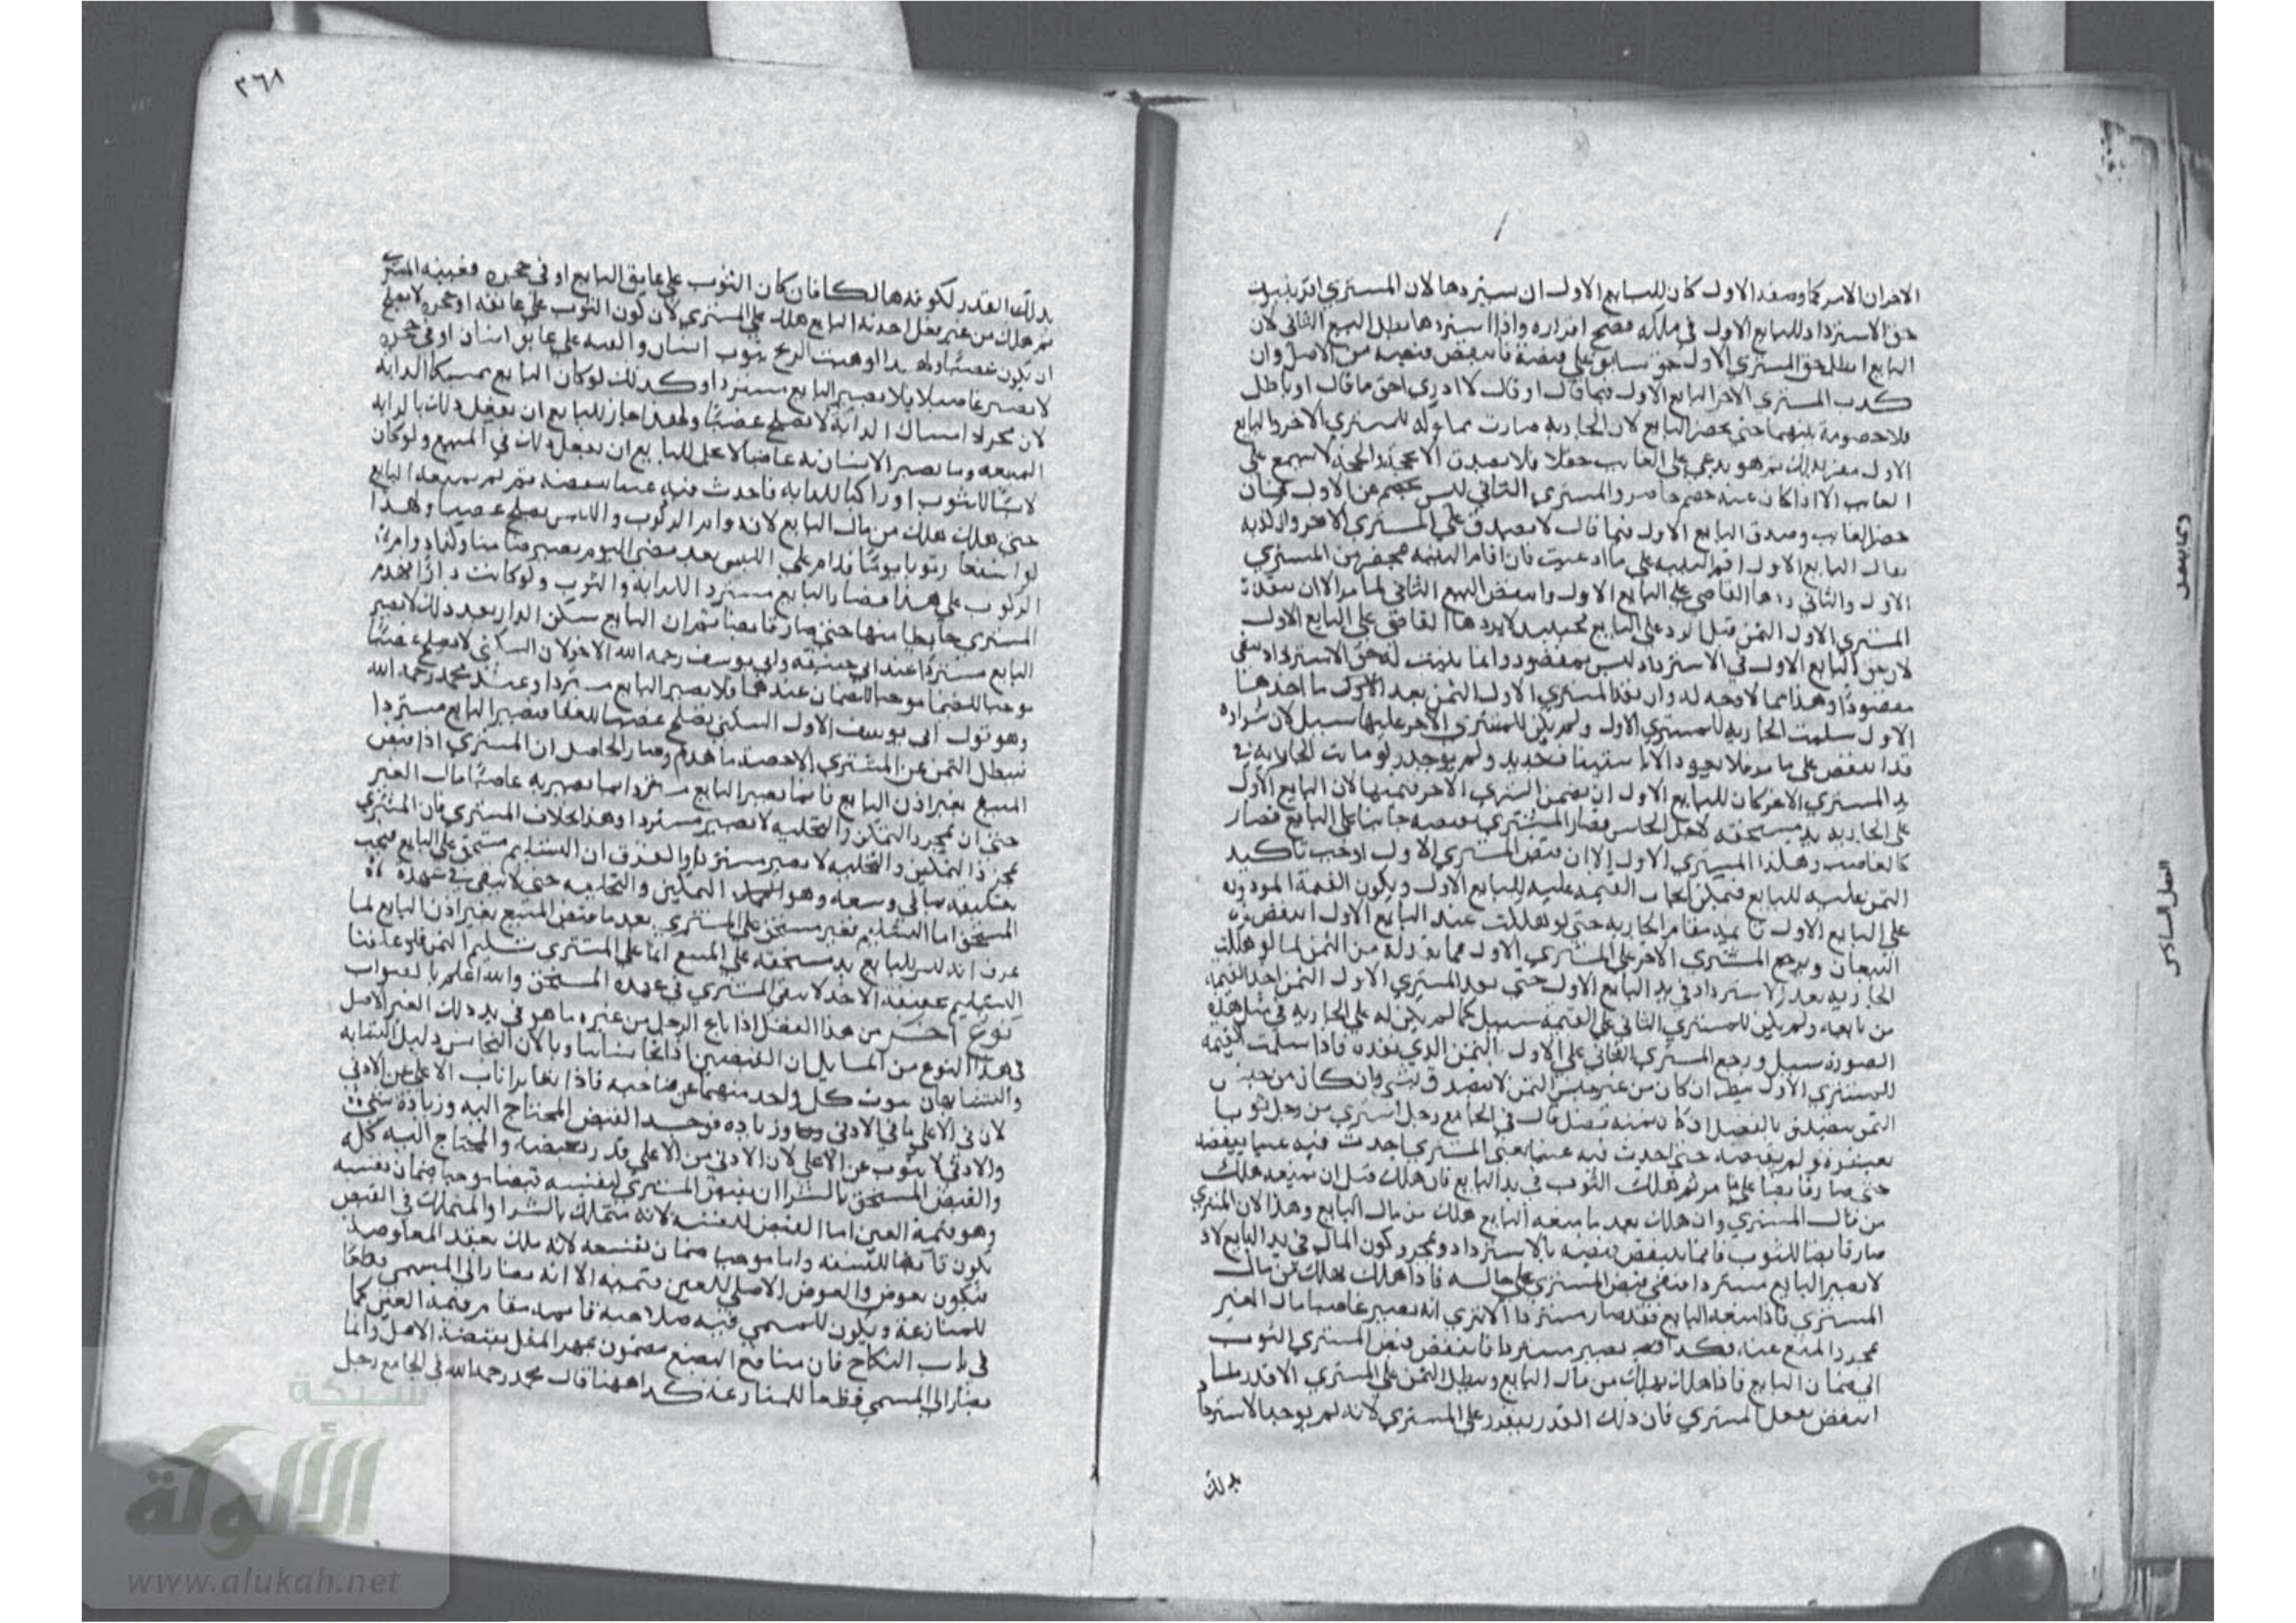 الاخر ان الامر كما وصفه الاول كان للبايع الاول ان يستردها لان المشتري اقر بثبوت
حق الاسترداد للبايع الاول في ملكه فصح اقراره واذا استردها بطل البيع الثاني لان
البايع ابطل حق المشتري الاول حق سابق على قبضه فانتقض قبضه من الاصل وان
كذب المشتري الاخر البايع الاول فيما قال او قال لا ادري احق ما قال او باطل
فلا خصومة بينهما حتى يحضر البايع لان الجارية صارت مملوكة للمشتري الاخر والبايع
الاول مقر بذلك ثم هو يدعي على الغايب حقا فلا يصدق الا بحجة والحجة لا تسمع على
الغايب الا اذا كان عنه خصم حاضر والمشتري الثاني ليس خصم عن الاول فان
حضر الغايب وصدق البايع الاول فيما قال لا يصدق على المشتري الاخر وان كذبه
يقال البايع الاول اقم البينة على ما ادعيت فان اقام البينة بمحضر من المشتري
الاول والثاني ردها القاضي على البايع الاول وانتقض البيع الثاني لما مر الا ان ينقد
المشتري الاول الثمن قبل الرد على البايع فحينئذ لا يردها القاضي على البايع الاول
لان حق البايع الاول في الاسترداد ليس بمقصود وانما يثبت له حق الاسترداد
مقصودا وهذا مما لا وجه له وان نقد المشتري الاول الثمن بعد الاول ما اخذها
الاول سلمت الجارية للمشتري الاول ولم يكن للمشتري الاخر عليها سبيل لان شراه
قد انتقض على ما مر فلا يعود الا باستيناف جديد ولم يوجد ولو ماتت الجارية في
يد المشتري الاخر كان للبايع الاول ان يضمن المشتري الاخر قيمتها لان البايع الاول
على الجارية يد مستحقة لاجل الحبس فصار المشتري بقبضه جانيا على البايع فصار
كالغاصب وهلاك المشتري الاول الا ان قبض المشتري الاول اوجب تاكيد
الثمن عليه للبايع فيمكن ايجاب القيمة عليه للبايع الاول ويكون القيمة المودودة
على البايع الاول قايمة مقام الجارية حتى لو هلكت عند البايع الاول انتقض
البيعان ويرجع المشتري الاخر على المشتري الاول بما نقد له من الثمن لما لو هلكت
الجارية بعد الاسترداد في يد البايع الاول حتى نقد المشتري الاول الثمن اخذ القيمة
من بايعه ولم يكن للمشتري الثاني على القيمة سبيل كما لم يكن له على الجارية في مثل هذه
الصورة سبيل ورجع المشتري الثاني على الاول بالثمن الذي نقده فاذا سلمت القيمة
للمشتري الاول ينظر ان كان من غير جنس الثمن لا يتصدق بشي وان كان من جنس
الثمن يتصدق بالفضل ان كان ثمنه فضل قال في الجامع رجل اشتري من رجل ثوبا
بعشرة ولم يقبضه حتى احدث فيه عيبا يعني المشتري احدث فيه عيبا ينقصه
حتى صار قابضا على ما مر ثم هلك الثوب في يد البايع فان هلك قبل ان يمنعه هلك
من مال المشتري وان هلك بعد ما منعه البايع هلك من مال البايع وهذا لان المشتري
صار قابضا للثوب فانما ينتقض قبضه بالاسترداد وبمجرد كون المال في يد البايع لا
لا يصير البايع مستردا فبقي قبض المشتري على حاله فاذا هلك هلك من مال
المشتري فاذا منعه البايع فقد صار مستردا الا ترى انه يصير غاصبا مال الغير
بمجرد المنع عنه فكذا يصير مستردا فانتقض قبض المشتري الثوب
الى ضمان البايع فاذا هلك هلك من مال البايع ويبطل الثمن على المشتري الا قدر ما
انتقض بفعل المشتري فان ذلك القدر يتقرر على المشتري لانه لم يوجد الاسترداد
بذلك
٣٦٨
بذلك القدر لكونه هالكا فان كان الثوب على عاتق البايع او في حجره فعيبه المشتري
ثم هلك من غير فعل احدثه البايع هلك على المشتري لان كون الثوب على عاتقه او حجره لا يصلح
ان يكون غصبا ولهذا لو هبت الريح بثوب انسان والقته على عاتق انسان او في حجره
لا يصير غاصبا فلا يصير البايع مستردا وكذلك لو كان البايع ممسكا الدابة
لان مجرد امساك الدابة لا يصلح غصبا ولهذا جاز للبايع ان يفعل ذلك بالدابة
المبيعة وما يصير الانسان به غاصبا لا يحل للبايع ان يفعل ذلك في المبيع ولو كان
لابسا للثوب او راكبا للدابة فاحدث فيه عيبا ينقصه ثم لم يمنعه البايع
حتى هلك هلك من مال البايع لانه دام الركوب واللبس يصلح غصبا ولهذا
لو استعار ثوبا يوما فدام على اللبس بعد مضي اليوم يصير ضامنا وكذا دوام
الركوب على هذا فصار البايع مستردا للدابة والثوب ولو كانت دارا فهدم
المشتري حايطا منها حتى صار قابضا ثم ان البايع سكن الدار بعد ذلك لا يصير
البايع مستردا عند ابي حنيفة وابي يوسف رحمه الله الاخر لان السكنى لا يصلح غصبا
موجبا للضمان عندهما فلا يصير البايع مستردا وعند محمد رحمه الله
وهو قول ابي يوسف الاول السكنى يصلح غصبا للعقار فيصير البايع مستردا
فيبطل الثمن عن المشتري الا حصة ما هدم وصار الحاصل ان المشتري اذا قبض
المبيع بغير اذن البايع فانما يصير البايع مستردا بما يصير به غاصبا مال الغير
حتى ان بمجرد التمكن والتخلية لا يصير مستردا وهذا بخلاف المشتري فان المشتري
بمجرد التمكين والتخلية يصير والفرق ان التسليم مستحق على البايع فيجب
تكليفه بما في وسعه وهو التمكين والتخلية حتى لا يبقى في عهدة
المستحق اما التسليم فغير مستحق على المشتري بعد ما قبض المبيع بغير اذن البايع لما
عرف انه ليس للبايع يد مستحقة على المبيع انما على المشتري تسليم الثمن فلو علقنا
التسليم بحقيقة الاخذ لا يبقى المشتري في عهدة المستحق والله اعلم بالصواب
نوع اخر من هذا الفصل اذا باع الرجل من غيره ما هو في يد ذلك الغير الاصل
في هذا النوع من المسايل ان القبضين اذا تجانسا تناوبا لان التجانس دليل التشابه
والمتشابهان ينوب كل واحد منهما عن صاحبه فاذا تغايرا ناب الاعلى عن الادنى
لان في الاعلى ما في الادنى وزيادة فوجد القبض المحتاج اليه وزيادة شيء
والادنى لا ينوب عن الاعلى لان الادنى من الاعلى قدر بعضه والمحتاج اليه كله
والقبض المستحق بالشرا ان يقبض المشتري لنفسه قبضا موجبا ضمان نفسه
وهو قيمة العين اما القبض لنفسه لانه متملك بالشرا والمتملك في القبض
يكون قابضا لنفسه واما موجبا ضمان نفسه لانه ملك بعقد المعاوضة
فيكون بعوض والعوض الاصلي للعين قيمته الا انه يصار الى المسمى قطعا
للمنازعة ويكون للمسمى فيه صلاحية قايمة مقام قيمة العين كما
في باب النكاح فان منافع البضع مضمون بمهر المثل بقضية الاصل وانما
يصار الى المسمى قطعا للمنازعة كذا ههنا قال محمد رحمه الله في الجامع رجل
شبكة
الألوكة
www.alukah.net